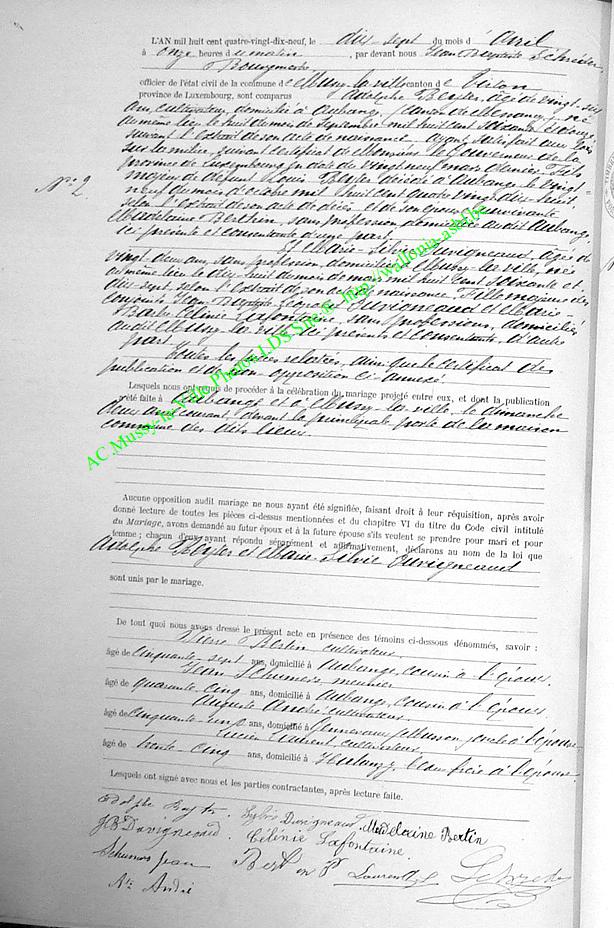 L'AN mil huit cent quatre-vingt-dix-neuf, le dix-sept du mois d'Avril
à onze heures du matin, par devant nous Jean Baptiste
Bourgmestre
officier de l'état civil de la commune de Mussy-la-ville canton de Virton
province de Luxembourg, sont comparus Adolphe âgé de vingt-six
ans, cultivateur, domicilié à Aubange, canton de Messancy, né
au même lieu le huit du mois de Septembre mil huit cent soixante et douze
suivant l'extrait de son acte de naissance ayant satisfait aux lois
sur la milice, suivant certificat de Monsieur le Gouverneur de la
province de Luxembourg en date du vingt neuf mars dernier. Fils
majeur de défunt Louis décédé à Aubange le vingt-
N° 2.
neuf du mois d'octobre mil huit cent quatre vingt dix-huit
selon l'extrait de son acte de décès et de son épouse survivante
Madelaine Berthin, sans profession domiciliée au dit Aubange,
ici présente et consentante d'une part,
Et Marie-Silvie Duvigneaud, âgée de
vingt deux ans, sans profession domiciliée à Mussy-la-ville, née
au même lieu le dix-huit du mois de mars mil huit cent soixante et
dix-sept, selon l'extrait de son acte de naissance. Fille majeure des
conjoints Jean Baptiste Duvigneaud et Marie-
Barbe Célinie Lafontaine, sans profession, domiciliés
audit Mussy-la-ville ici présents et consentants, d'autre
part.
Toutes les pièces relatées, ainsi que le certificat de
publication et de non opposition ci-annexé.
Lesquels nous ont requis de procéder à la célébration du mariage projeté entre eux, et dont la publication
a été faite à Aubange et à Mussy-la-ville, le dimanche
deux avril courant, devant la principale porte de la maison
commune des dits lieux.
Aucune opposition audit mariage ne nous ayant été signifiée, faisant droit à leur réquisition, après avoir
donné lecture de toutes les pièces ci-dessus mentionnées et du chapitre VI du titre du Code civil intitulé
du Mariage, avons demandé au futur époux et à la future épouse s'ils veulent se prendre pour mari et pour
femme ; chacun d'eux ayant répondu séparément et affirmativement, déclarons au nom de la loi que
Adolphe et Marie-Silvie Duvigneaud
sont unis par le mariage.
De tout quoi nous avons dressé le présent acte en présence des témoins ci-dessous dénommés, savoir :
Pierre Bertin cultivateur
âgé de cinquante sept ans, domicilié à Aubange, cousin à l'époux.
Jean Schumers meunier
âgé de quarante cinq ans, domicilié à Aubange, cousin à l'époux.
Auguste André cultivateur
âgé de cinquante un ans, domicilié à oncle à l'épouse
Lucien Laurent cultivateur
âgé de trente cinq ans, domicilié à beau frère à l'épouse.
Lesquels ont signé avec nous et les parties contractantes, après lecture faite.
Adolphe Sylvie Duvigneaud Madelaine Bertin
JB Duvigneaud Célinie Lafontaine
Schumers Jean Bertin P Laurent
André
AC Mussy-la-Ville Photos LDS Site @ http://wallonia-asbl.be